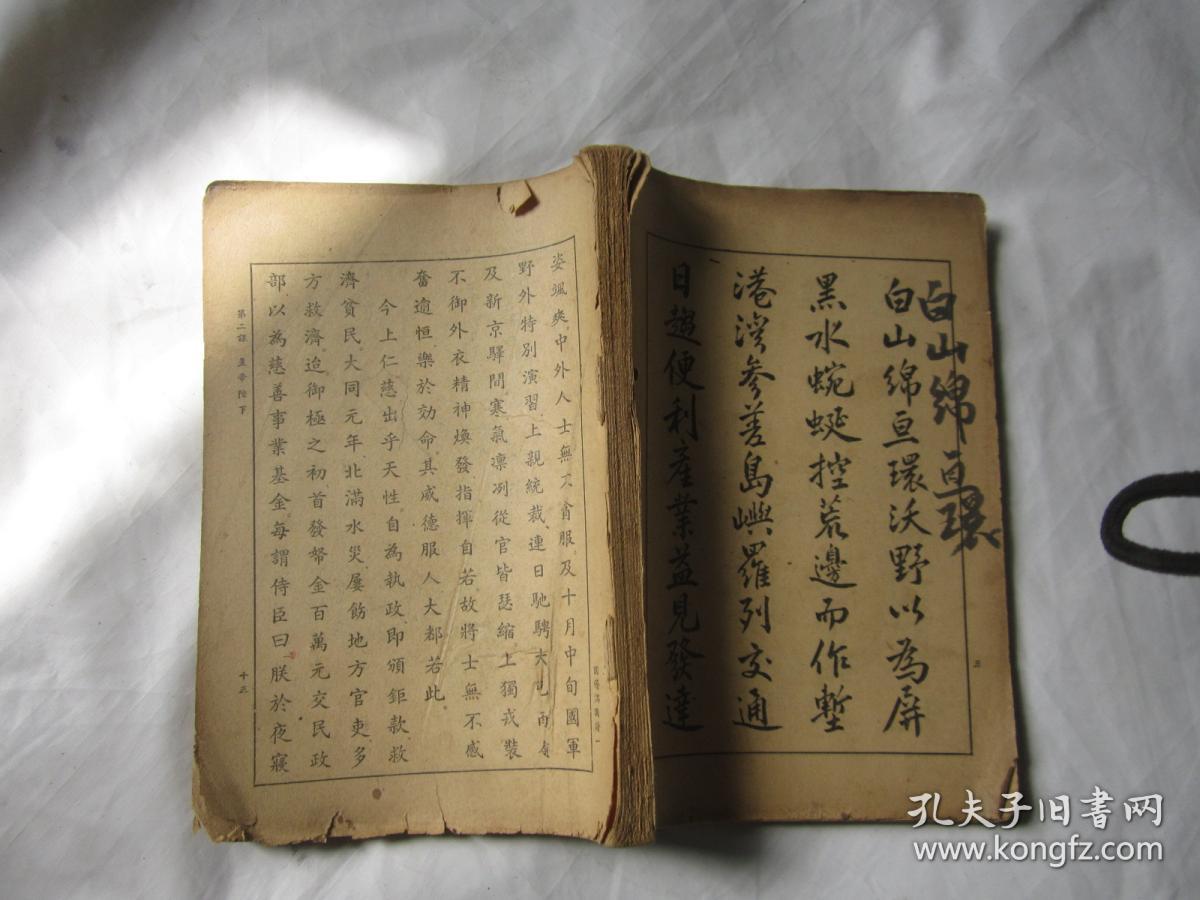 白山綿亘環
白山綿亘環沃野以為屏
黑水蜿蜒控荒邊而作塹
港灣參差島嶼羅列交通
日趨便利產業益見發達
五
姿颯爽中外人士無不貪服及十月中旬國軍
野外特別演習上親統裁連日馳騁大屯
及新京驛間寒氣凛冽從官皆瑟縮上獨戎裝
不御外衣精神煥發指揮自若故將士無不感
奮逾恒樂於効命其威德服人大都若此
今上仁慈出乎天性自為執政即頒鉅款救
濟貧民大同元年北滿水災屢飭地方官吏多
方救濟迨御極之初首發帑金百萬元交民政
部以為慈善事業基金每謂侍臣曰朕於夜寢
第二課 皇帝陛下
十三
孔夫子旧书网
www.kongfz.com